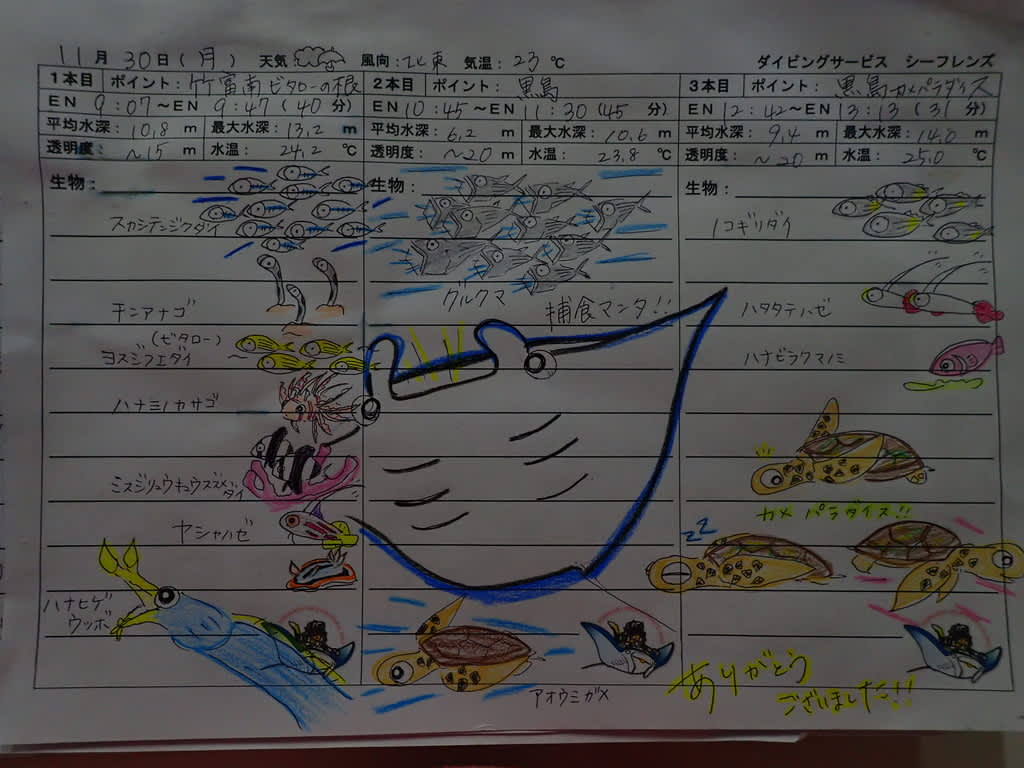 11月30日(月) 天気 風向:北東 気温:23℃ ダイビングサービス シーフレンズ
1本目 ポイント:竹富南ビタローの根
EN 9:07~EN 9:47(40分)
平均水深:10.8m 最大水深:13.2m
透明度:~15m 水温:24.2℃
生物:
スカシテンジクダイ
チンアナゴ
(ビタロー)
ヨスジフエダイ
ハナミノカサゴ
ミスジリュウキュウスズメダイ
ヤシャハゼ
ハナヒゲ
ウツボ
2本目 ポイント:黒島
EN10:45~EN 11:30(45分)
平均水深:6.2m 最大水深:10.6m
透明度:~20m 水温:23.8℃
生物:
グルクマ
捕食マンタ!!
アオウミガメ
3本目 ポイント:黒島カメパラダイス
EN 12:42~EN 13:13(31分)
平均水深:9.4m 最大水深:14.0m
透明度:~20m 水温:25.0℃
生物:
ノコギリダイ
ハタタテハゼ
ハナビラクマノミ
カメパラダイス!!
ZZ
ありがとう
ございました!!